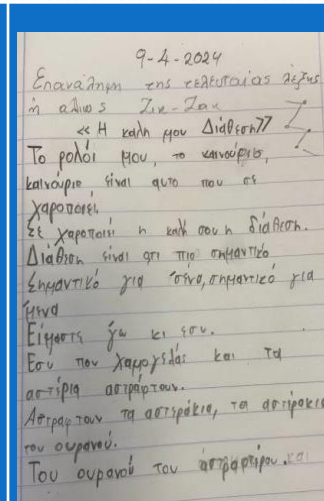 9-4-2024
Επανάληψη της τελευταίας λέξης
ή αλιως Ζικ-Ζακ
<< Η καλή μου Διάθεση>>
Το ρολόι μου, το καινούριο,
καινούριο είναι αυτο που σε
χαροποιεί.
Σε χαροποιεί η καλή σου η διάθεση.
Διάθεση είναι ότι πιο σημαντικό
Σημαντικό για 'σένα, σημαντικό για
'μένα
Είμαστε 'γω κι εσυ.
Εσυ που χαμογελάς και τα
αστέρια αστράφτουν.
Αστραφτουν τα αστεράκια, τα αστέρακια
του ουρανού.
Του ουρανού του αστραφτερου. και